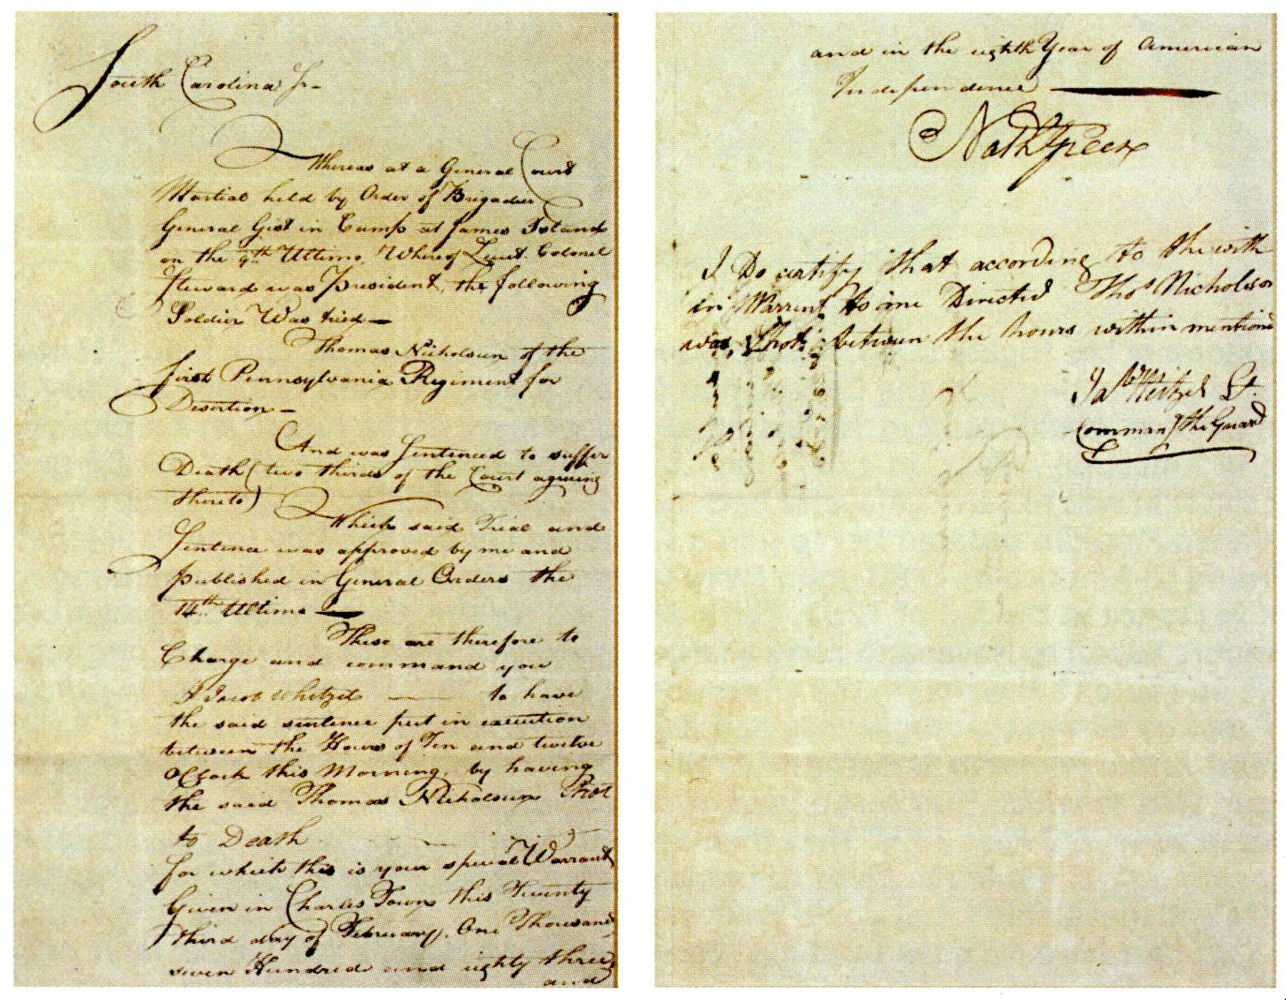 South Carolina Ss.
Whereas at a General Court
Martial held by Order of Brigadier
General Gist in Camp at James Island
on the 9th Ultimo, Whereof Lieut. Colonel
Steward was President, the following
Soldier Was tried—
Thomas Nicholson of the
first Pennsylvania Regiment for
Desertion—
And was Sentenced to suffer
Death (two thirds of the Court agreeing
thereto)
Which said Trial and
Sentence was approved by me and
published in General Orders the
14th Ultimo—
These are therefore to
Charge and command you
Jacob Whitzel — to have
the said sentence put in execution
between the Hours of Ten and twelve
oClock this Morning, by having
the said Thomas Nicholson Shot
to Death
for which this is your special Warrant
Given in Charles Town this Twenty
third day of February, One Thousand
seven Hundred and eighty three,
and
and in the eighth Year of American
Independence —
Nath Greene
I Do certify that according to the with
in Warrent to me Directed Thos Nicholson
was Shot between the hours within mentiond
Hetzel Lt.
Commang the Guard